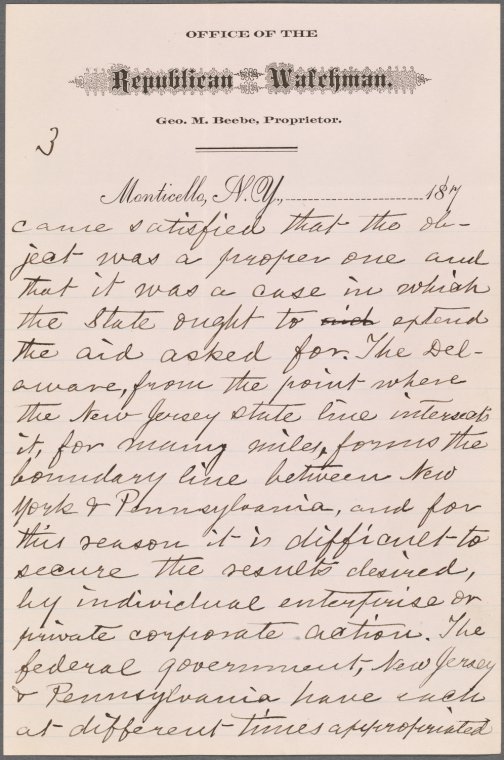 OFFICE OF THE
Republican Watchman.
Geo. M. Beebe, Proprietor.
3
Monticello, N. Y., 187
came satisfied that the ob-
ject was a proper one and
that it was a case in which
the State ought to extend
the aid asked for. The Del-
aware, from the point where
the New Jersey state line intersects
it, for many miles, forms the
boundary line between New
York & Pennsylvania, and for
this reason it is difficult to
secure the results desired,
by individual enterprise or
private corporate action. The
federal government, New Jersey
& Pennsylvania have each
at different times appropriated